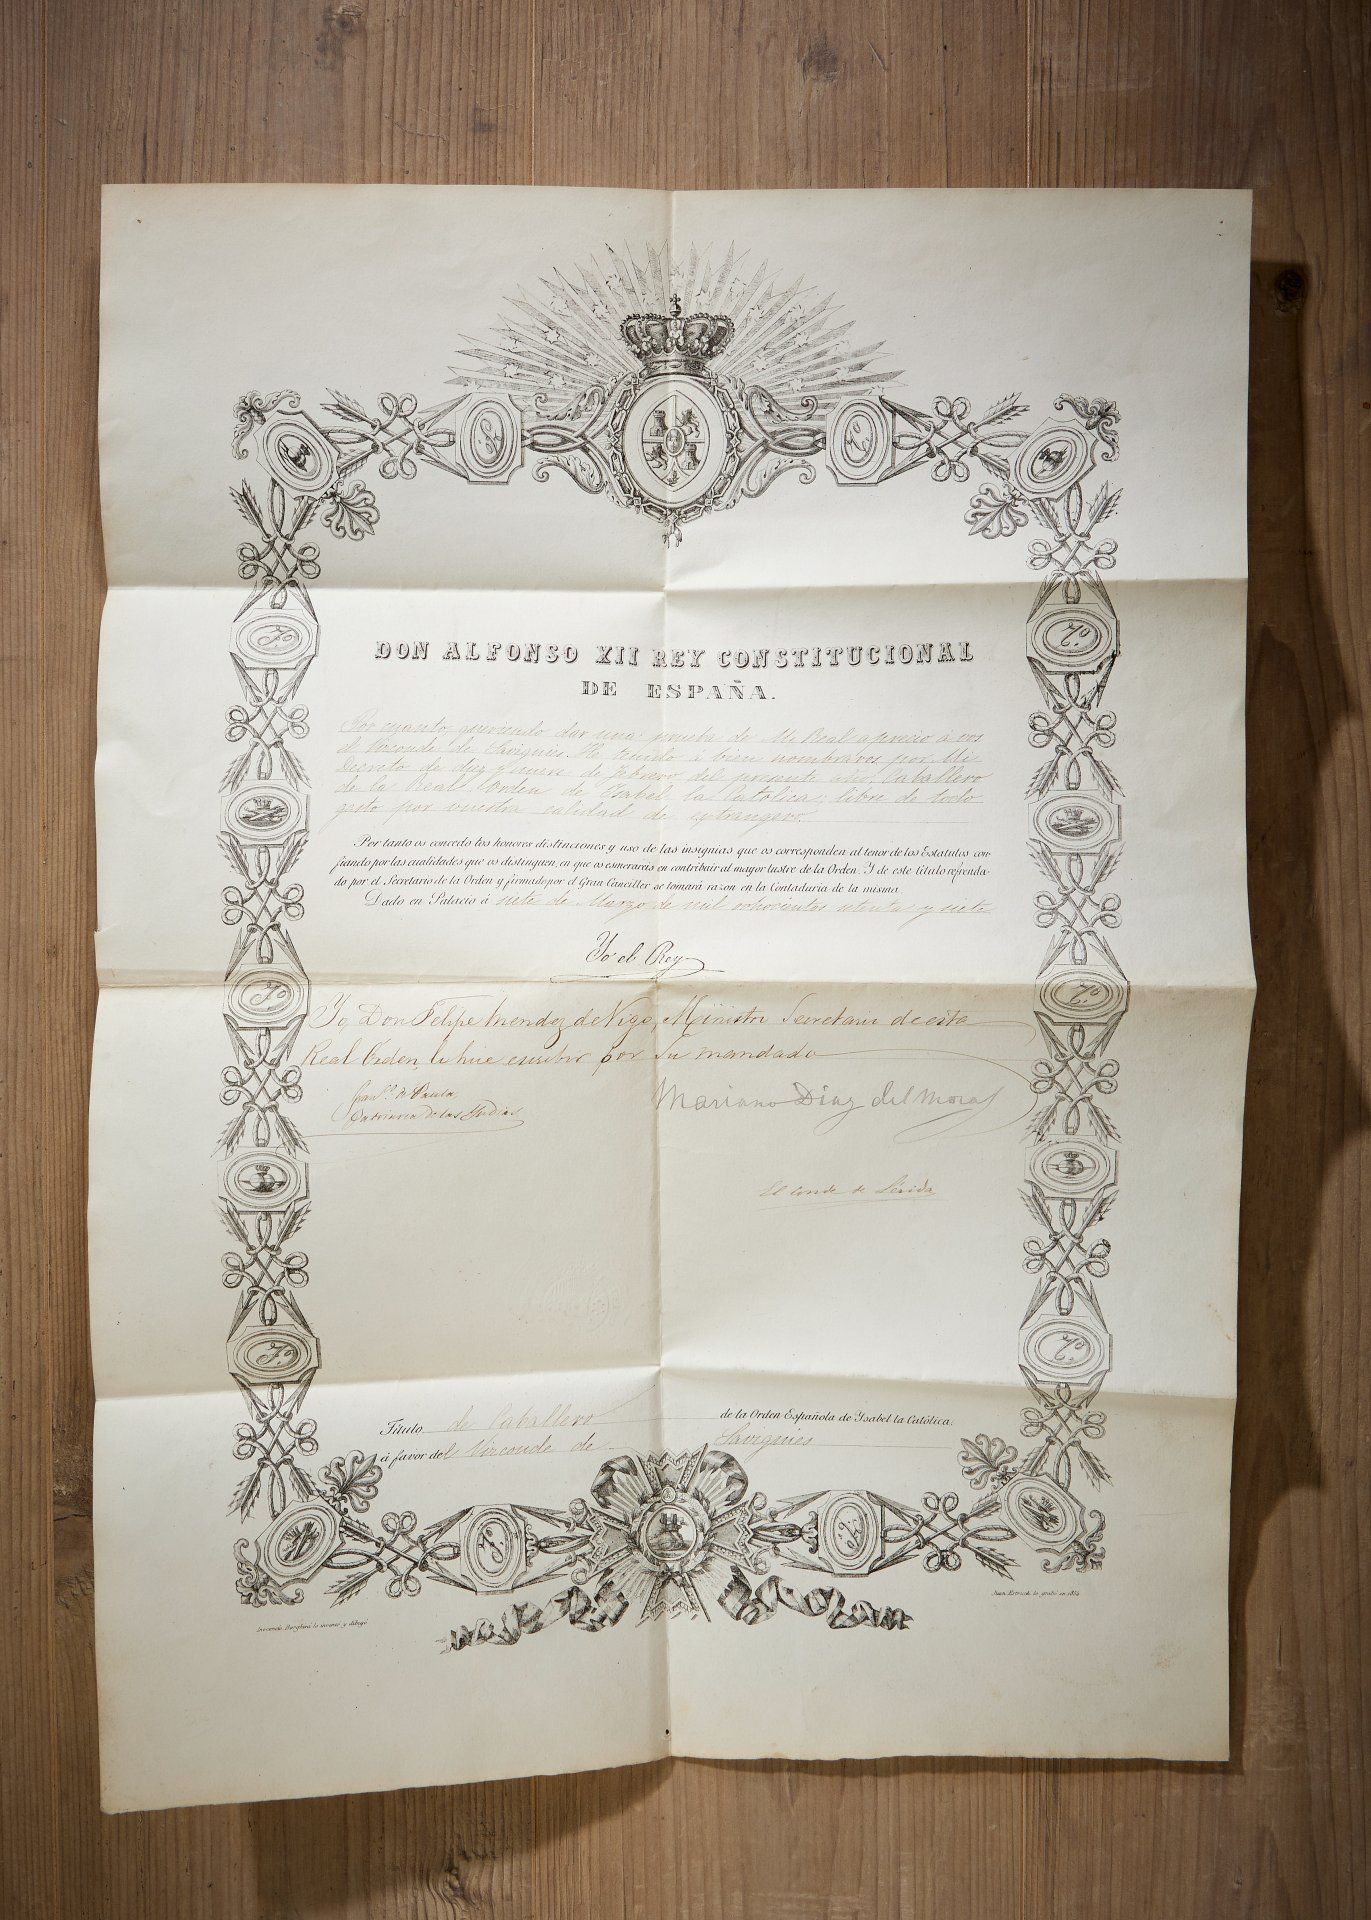 DON ALFONSO XII REY CONSTITUCIONAL
DE ESPAÑA.
Por cuanto queriendo dar una prueba de Mi Real aprecio á vos
el Vizconde de Savignies. He tenido á bien nombraros por Mi
Decreto de diez y nueve de febrero del presente año, Caballero
de la Real Orden de Isabel la Católica; libre de todo
gasto por vuestra calidad de extrangero.
Por tanto os concedo los honores distinciones y uso de las insignias que os corresponden al tenor de los Estatutos con-
fiando por las cualidades que os distinguen, en que os esmerareis en contribuir al mayor lustre de la Orden. Y de este título refrenda-
do por el Secretario de la Orden y firmado por el Gran Canciller se tomará razon en la Contaduría de la misma.
Dado en Palacio á siete de Marzo de mil ochocientos setenta y siete
Yo el Rey
Yo, Don Felipe Mendez de Vigo, Ministro Secretario de esta
Real Orden, le hice escribir por Su mandado
Fran.co de Paula
Patriarca de las Indias
Mariano Diaz del Moral
El Conde de
Título de Caballero de la Orden Española de Ysabel la Católica.
á favor del Vizconde de Savignies
Inocencio Borghini lo inventó y dibujó
Juan Estruch lo grabó en 1854